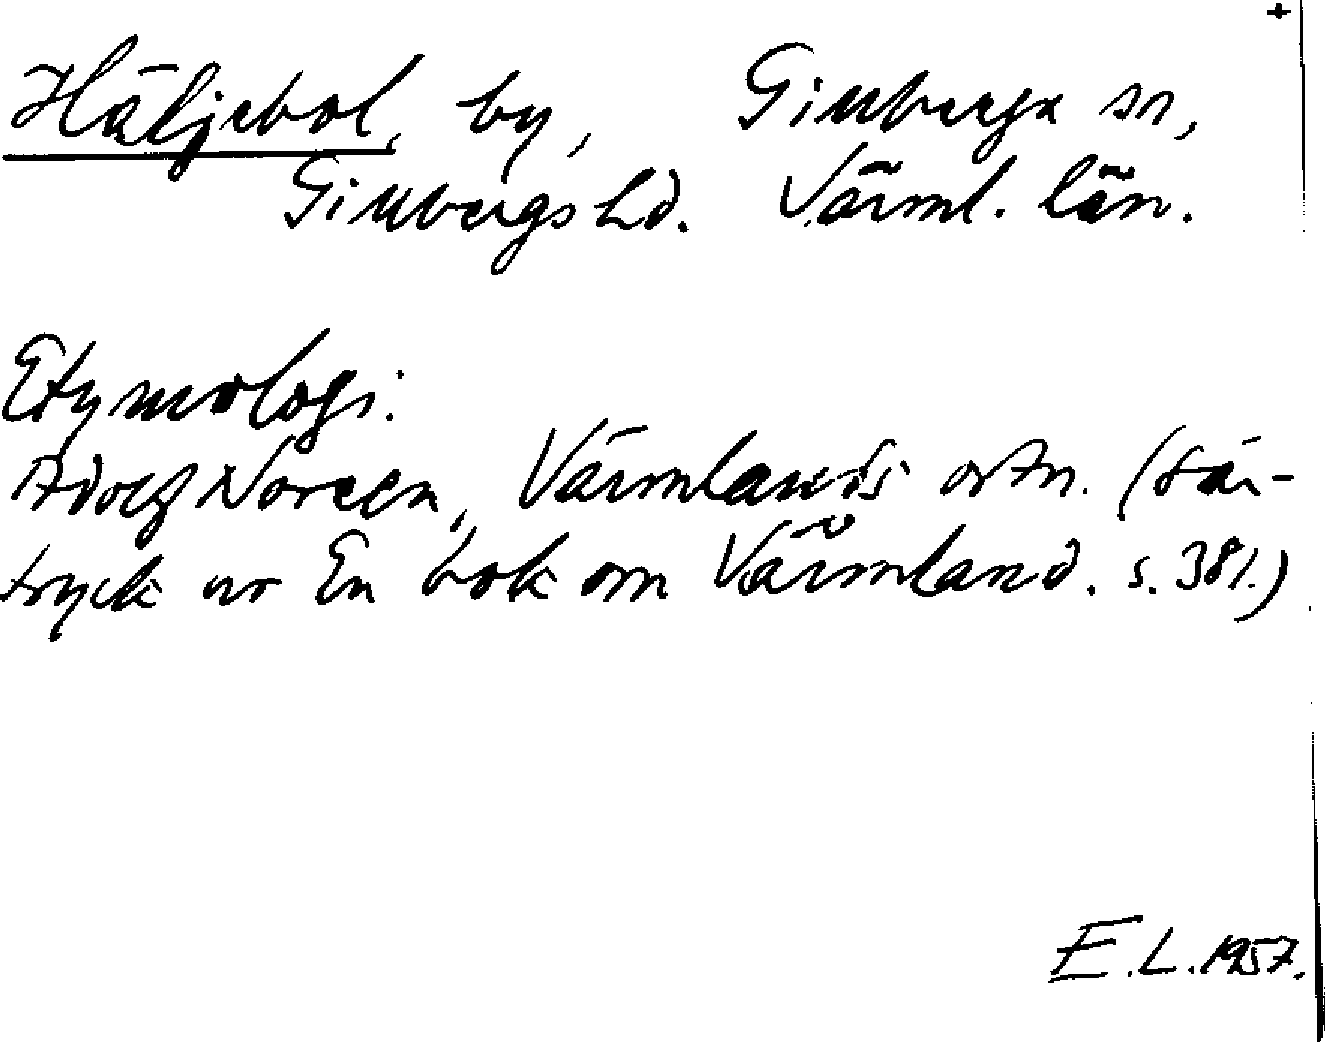 +
Häljebol, by, Gillberga sn,
Gillbergs hd. Värml. län.
Etymologi:
Adolf Noreen, Värmlands ortn. (sär-
tryck ur En bok om Värmland. s. 381.)
E.L. 1957.